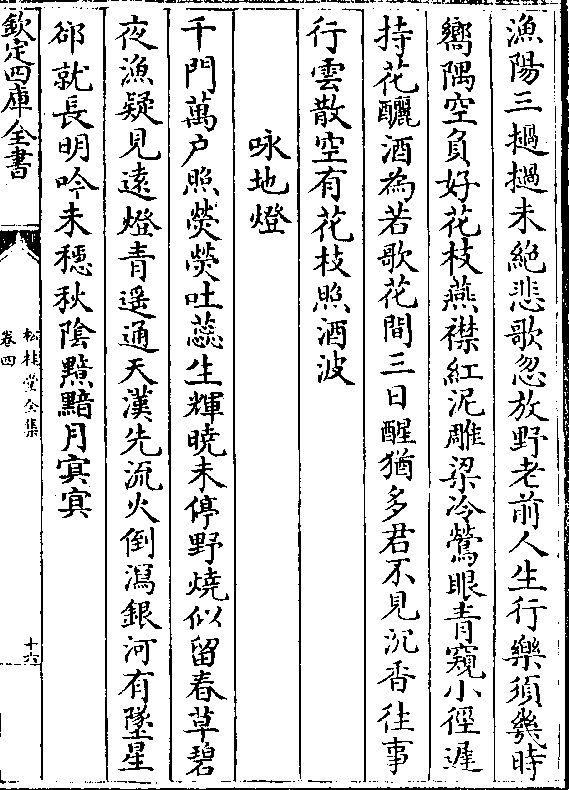 漁陽三撾撾未絶悲歌忽放野老前人生行樂須㡬時
嚮隅空負好花枝燕襟紅泥雕梁冷鶯眼青窺小徑遲
持花釃酒為若歌花間三日醒猶多君不見沉香往事
行雲散空有花枝照酒波
咏地燈
千門萬户照熒熒吐蕊生輝曉未停野燒似留春草碧
夜漁疑見遠燈青遥通天漢先流火倒瀉銀河有墜星
卻就長明吟未穩秋陰黰黯月㝠㝠
欽定四庫全書
松桂堂全集
卷四
十六